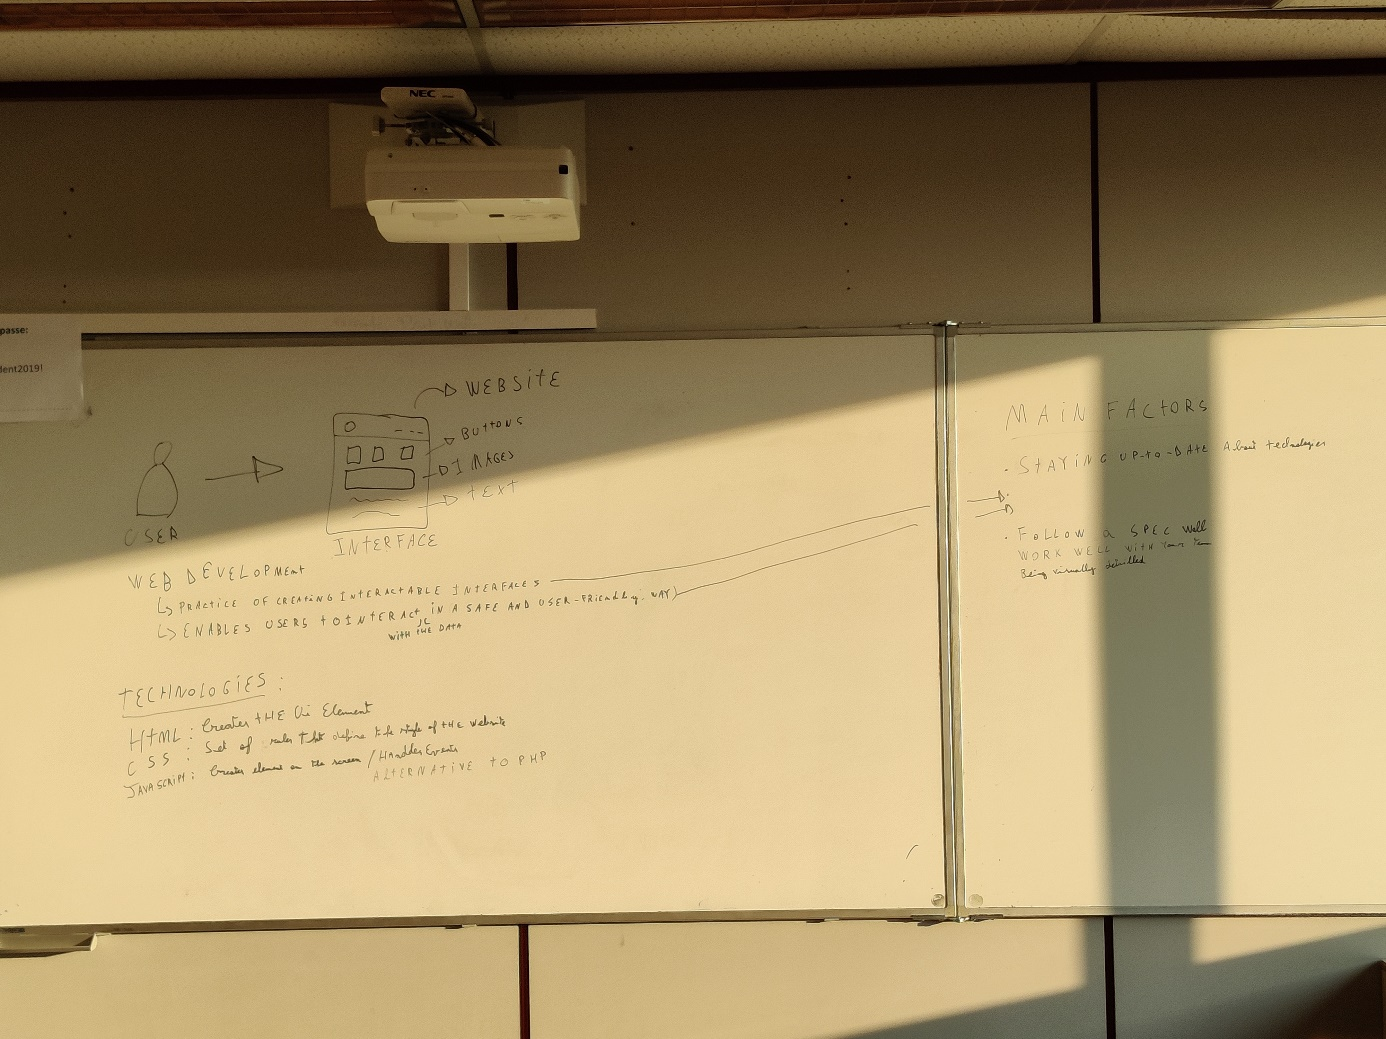 NEC
passe:
dent2019!
WEBSITE
BUTTONS
IMAGES
TEXT
USER
INTERFACE
WEB DEVELOPMENT
PRACTICE OF CREATING INTERACTABLE INTERFACES
ENABLES USERS TO INTERACT IN A SAFE AND USER-FRIENDLY WAY)
WITH THE DATA
TECHNOLOGIES :
HTML : Creates THE Ui Element
CSS : Set of rules that define the style of THE Website
JAVASCRIPT : Creates element on the screen / Handles Events
ALTERNATIVE TO PHP
MAIN FACTORS
. STAYING UP-TO-DATE About technologies
. FOLLOW a SPEC Well
WORK WELL WITH Your Team
Being visually detailed